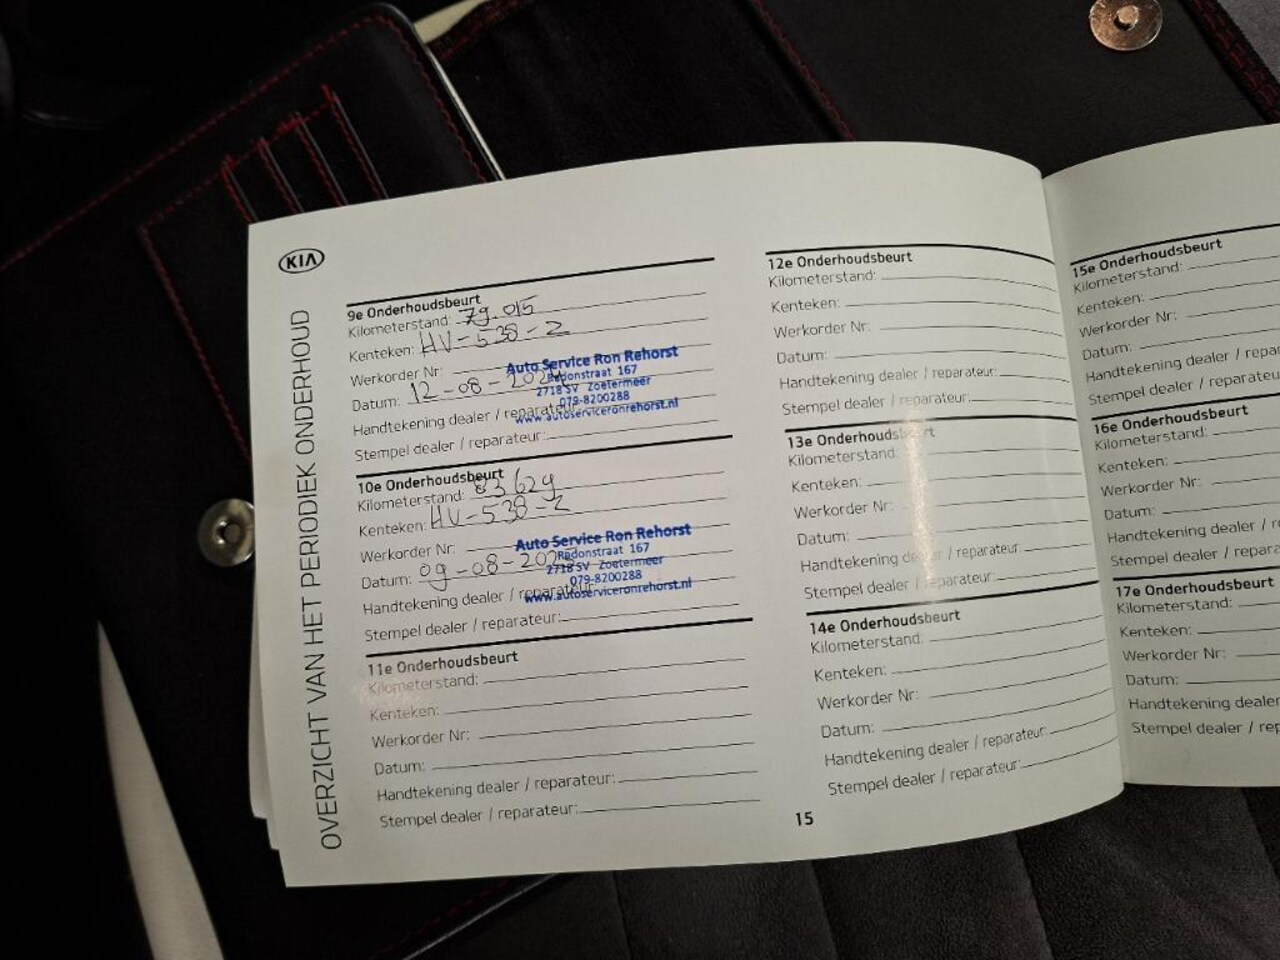 KIA
OVERZICHT VAN HET PERIODIEK ONDERHOUD
9e Onderhoudsbeurt
Kilometerstand: 79.015
Kenteken: HV-538-Z
Werkorder Nr:
Datum: 12-08-2024
Handtekening dealer / reparateur:
Stempel dealer / reparateur:
Auto Service Ron Rehorst
Radonstraat 167
2718 SV Zoetermeer
079-8200288
www.autoserviceronrehorst.nl
10e Onderhoudsbeurt
Kilometerstand: 83629
Kenteken: HV-538-Z
Werkorder Nr:
Datum: 09-08-202
Handtekening dealer / reparateur:
Stempel dealer / reparateur:
Auto Service Ron Rehorst
Radonstraat 167
2718 SV Zoetermeer
079-8200288
www.autoserviceronrehorst.nl
11e Onderhoudsbeurt
Kilometerstand:
Kenteken:
Werkorder Nr:
Datum:
Handtekening dealer / reparateur:
Stempel dealer / reparateur:
12e Onderhoudsbeurt
Kilometerstand:
Kenteken:
Werkorder Nr:
Datum:
Handtekening dealer / reparateur:
Stempel dealer / reparateur:
13e Onderhoudsbeurt
Kilometerstand:
Kenteken:
Werkorder Nr:
Datum:
Handtekening dealer / reparateur:
Stempel dealer / reparateur:
14e Onderhoudsbeurt
Kilometerstand:
Kenteken:
Werkorder Nr:
Datum:
Handtekening dealer / reparateur:
Stempel dealer / reparateur:
15
15e Onderhoudsbeurt
Kilometerstand:
Kenteken:
Werkorder Nr:
Datum:
Handtekening dealer / repar
Stempel dealer / reparateu
16e Onderhoudsbeurt
Kilometerstand:
Kenteken:
Werkorder Nr:
Datum:
Handtekening dealer / r
Stempel dealer / repara
17e Onderhoudsbeurt
Kilometerstand:
Kenteken:
Werkorder Nr:
Datum:
Handtekening dealer
Stempel dealer / rep